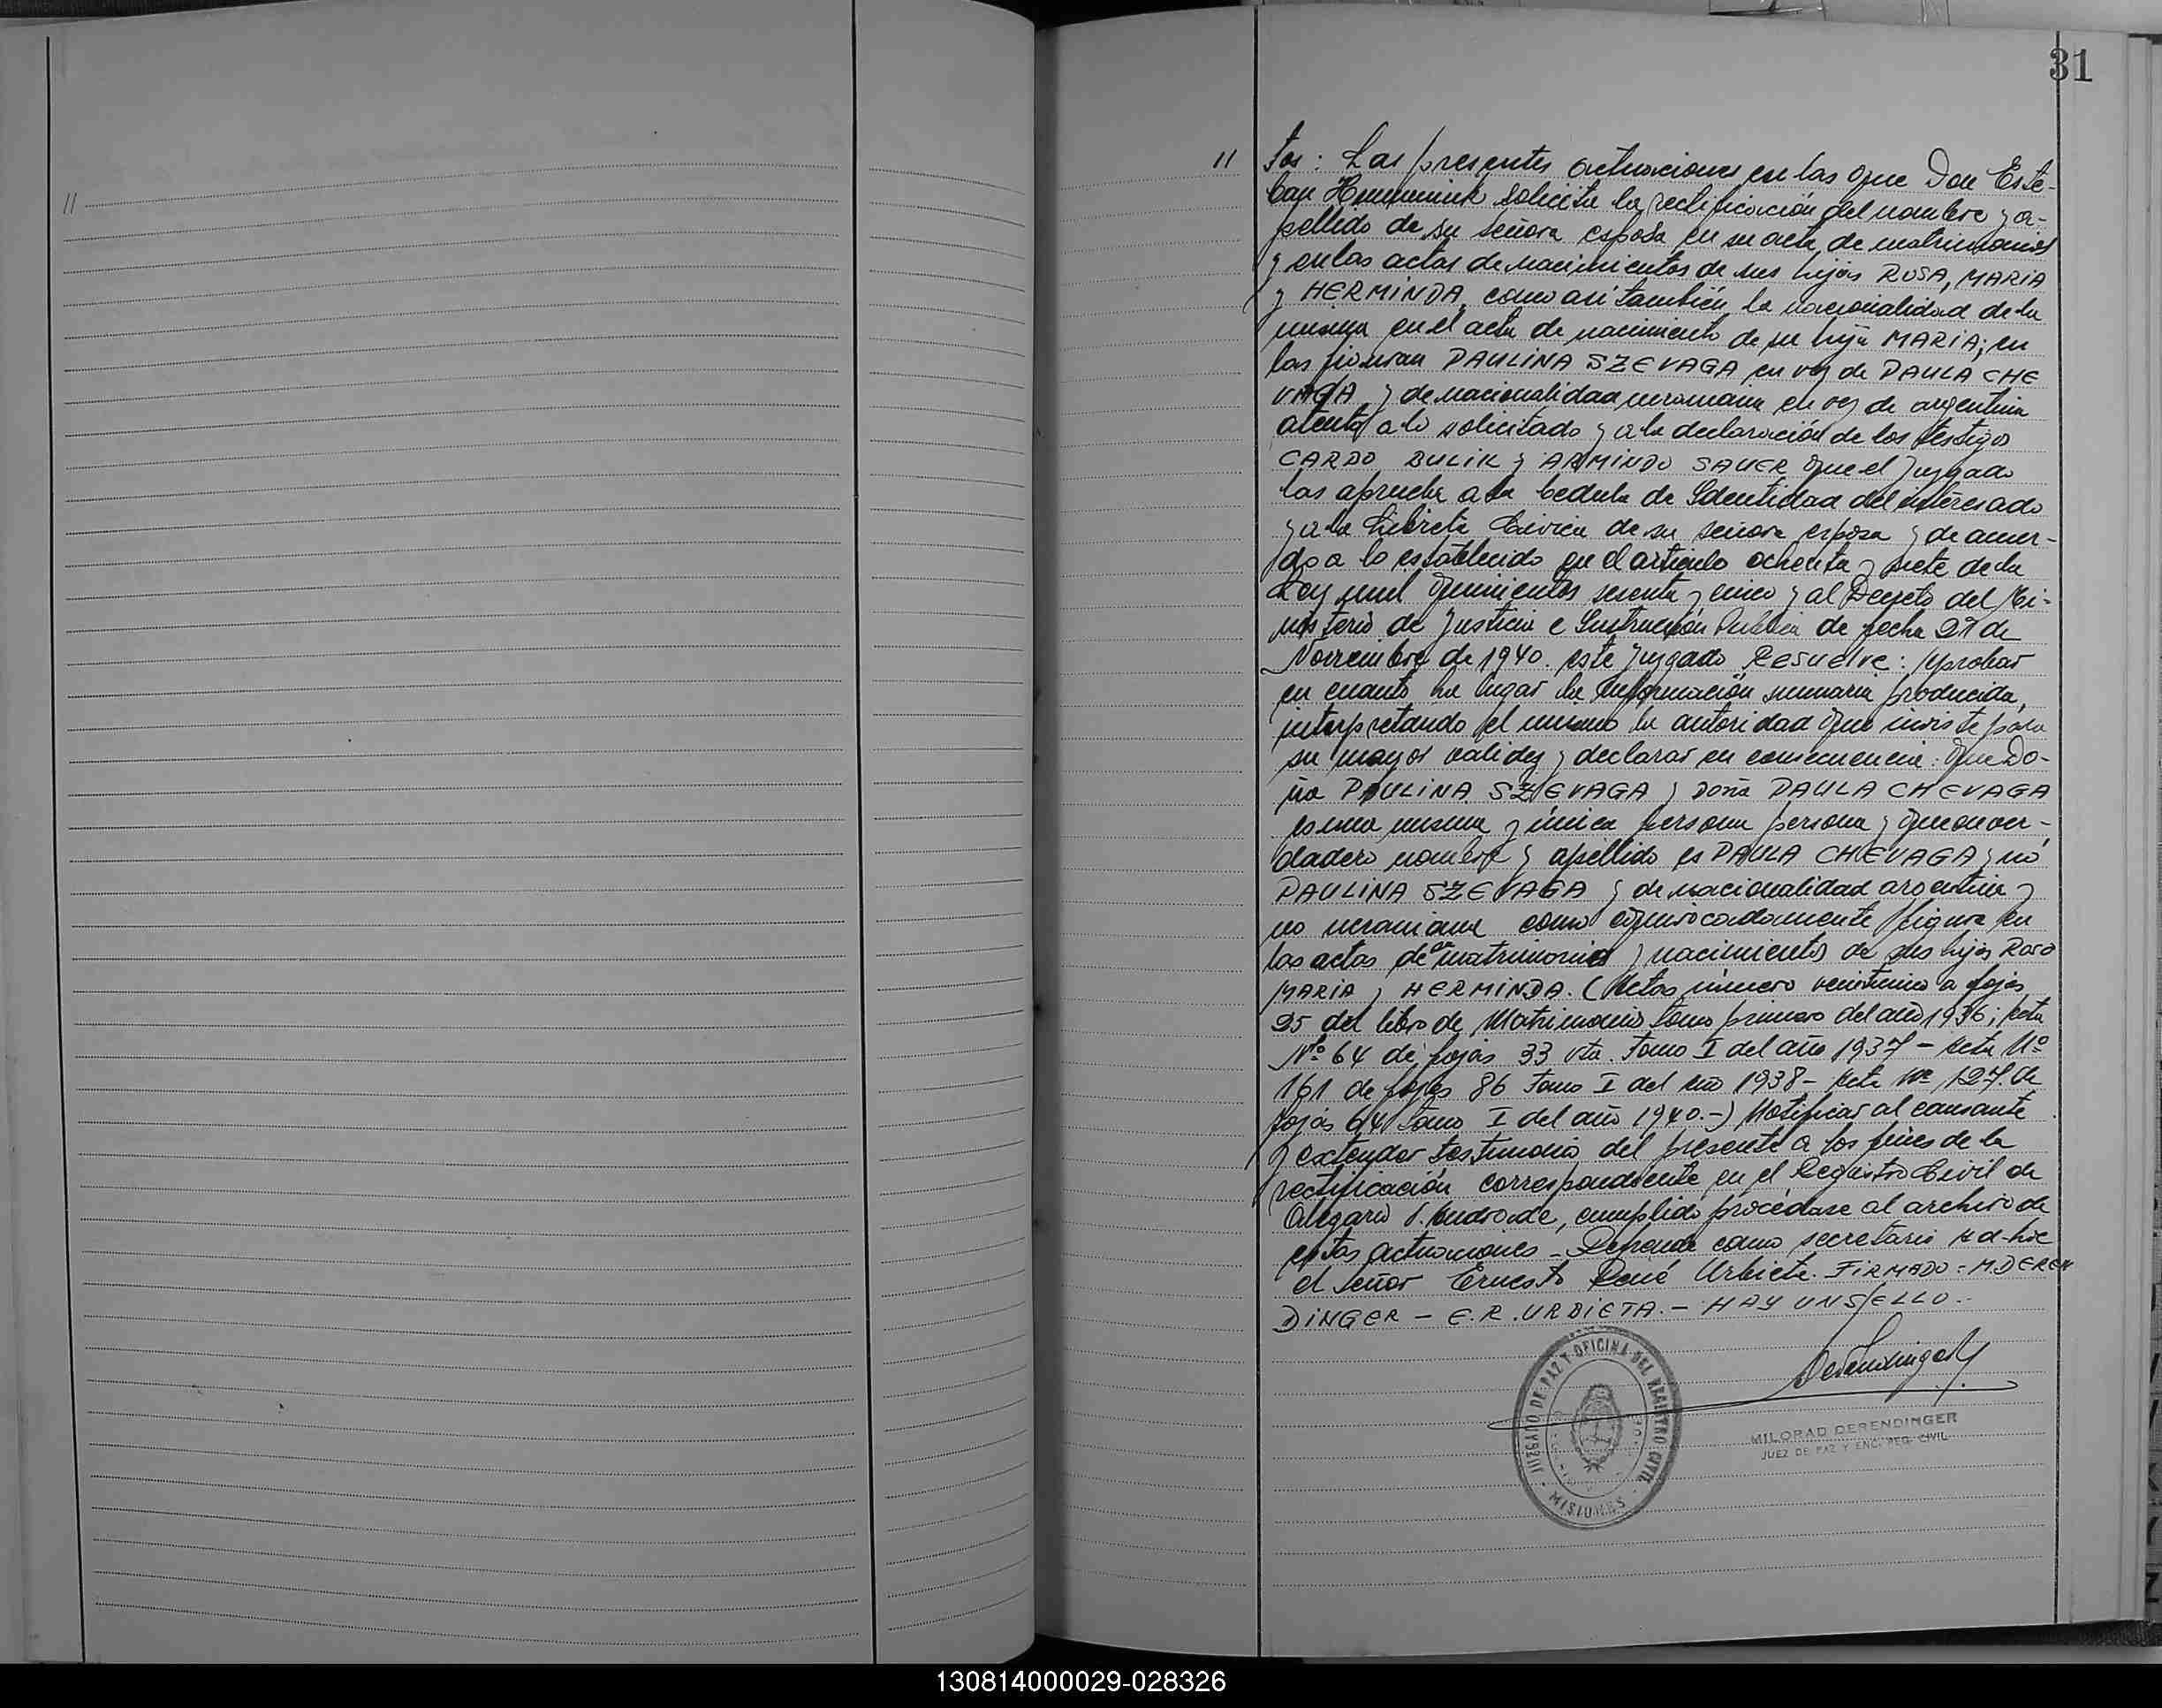 31
11
11
tos: Las presentes actuaciones en las que Don Este-
ban solicita la rectificación del nombre y a-
pellido de su señora esposa en su acta de matrimonio
y en las actas de nacimientos de sus hijas ROSA, MARIA
y HERMINDA, como asi también la nacionalidad de la
misma en el acta de nacimiento de su hija MARIA; en
las figuran PAULINA SZEVAGA en vez de PAULA CHE
VAGA y de nacionalidad ucraniana en vez de argentina
atento a lo solicitado y a la declaración de los testigos
CARDO BULIK y ARMINDO SAUER que el Juzgado
las aprueba a la Cedula de Identidad del interesado
y a la Libreta Civica de su señora esposa y de acuer-
do a lo establecido en el articulo ochenta y siete de la
Ley mil quinientos sesenta y cinco y al Decreto del Mi-
nisterio de Justicia e Instrucción Publica de fecha 27 de
Noviembre de 1940. este Juzgado Resuelve: Aprobar
en cuanto ha lugar la información sumaria producida,
interpretando el mismo la autoridad que inviste para
su mayor validez y declarar en consecuencia: Que Do-
ña PAULINA SZEVAGA y Doña PAULA CHEVAGA
es una misma y única persona persona y que su ver-
dadero nombre y apellido es PAULA CHEVAGA y no
PAULINA SZEVAGA y de nacionalidad argentina y
no ucraniana como equivocadamente figura en
las actas de matrimonio y nacimientos de sus hijas Rosa
MARIA y HERMINDA. (Actas número veintiuno a fojas
25 del libro de Matrimonios tomo primero del año 1936; Acta
Nº 64 de fojas 33 vta. Tomo I del año 1937 - Acta Nº
161 de fojas 86 Tomo I del año 1938 - Acta Nº 127 de
fojas 64 Tomo I del año 1940.-) Notificar al causante
y extender testimonio del presente a los fines de la
rectificación correspondiente en el Registro Civil de
Olegario V. Andrade, cumplido procédase al archivo de
estas actuaciones - como secretario ad-hoc
el señor Ernesto René Urbieta. FIRMADO - M. DEREN
DINGER - E.R. URBIETA. - HAY UN SELLO.-
JUZGADO DE PAZ Y OFICINA DEL REGISTRO CIVIL
MISIONES
Derendinger M
MILORAD DERENDINGER
JUEZ DE PAZ Y ENC. REG. CIVIL
130814000029-028326